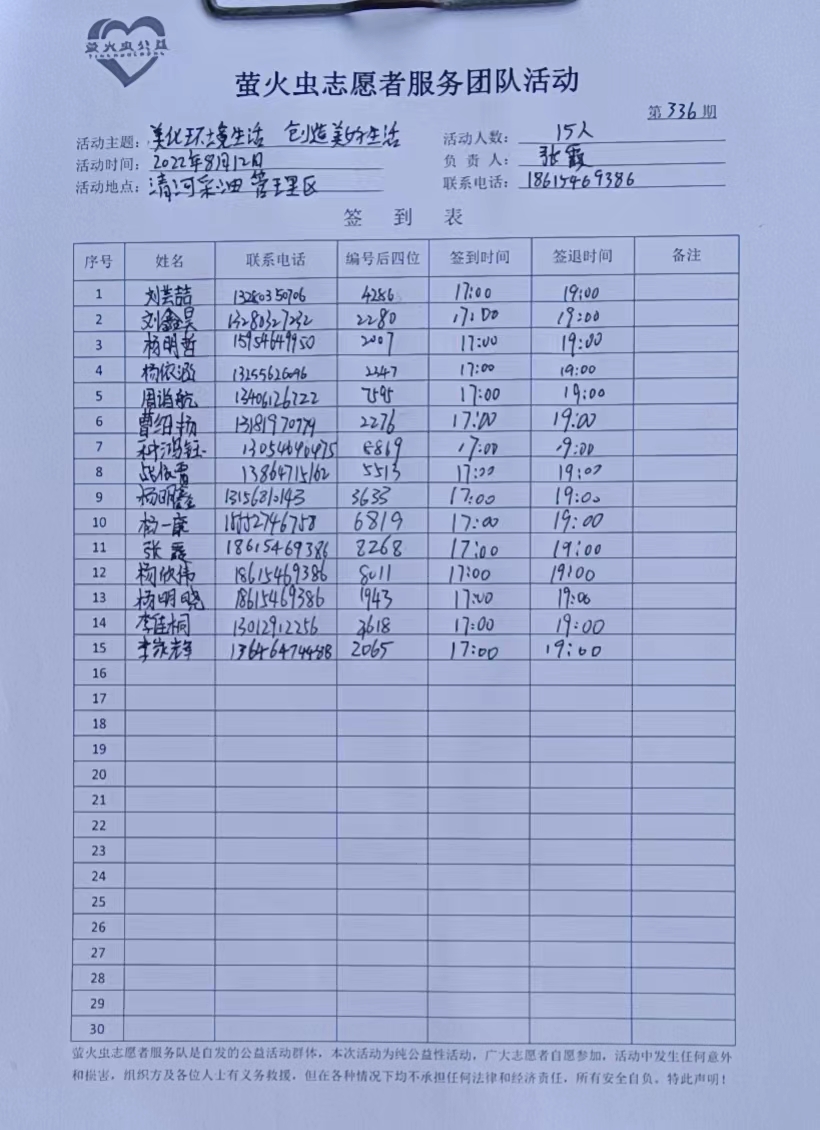 萤火虫公益
萤火虫志愿者服务团队活动
第 336 期
活动主题: 美化环境生活 创造美好生活 活动人数: 15人
活动时间: 2022年8月12日 负 责 人: 张霞
活动地点: 清河采油管理区 联系电话: 18615469386
签 到 表
序号 姓名 联系电话 编号后四位 签到时间 签退时间 备注
1 刘芸喆 13280350706 4286 17:00 19:00
2 刘鑫昊 13280327232 2280 17:00 19:00
3 杨明哲 15954649950 2007 17:00 19:00
4 杨依涵 13255626096 2347 17:00 19:00
5 周诣航 13406126722 7595 17:00 19:00
6 曹绍扬 13181970779 2276 17:00 19:00
7 13054690475 17:00 19:00
8 13864715162 5513 17:00 19:00
9 杨明鑫 3633 17:00 19:00
10 杨一康 15552746758 6819 17:00 19:00
11 张霞 18615469386 8268 17:00 19:00
12 杨依伟 18615469386 8011 17:00 19:00
13 杨明晓 18615469386 1943 17:00 19:00
14 李佳桐 13012912256 3618 17:00 19:00
15 13646474488 2065 17:00 19:00
16
17
18
19
20
21
22
23
24
25
26
27
28
29
30
萤火虫志愿者服务队是自发的公益活动群体，本次活动为纯公益性活动，广大志愿者自愿参加，活动中发生任何意外
和损害，组织方及各位人士有义务救援，但在各种情况下均不承担任何法律和经济责任，所有安全自负。特此声明！